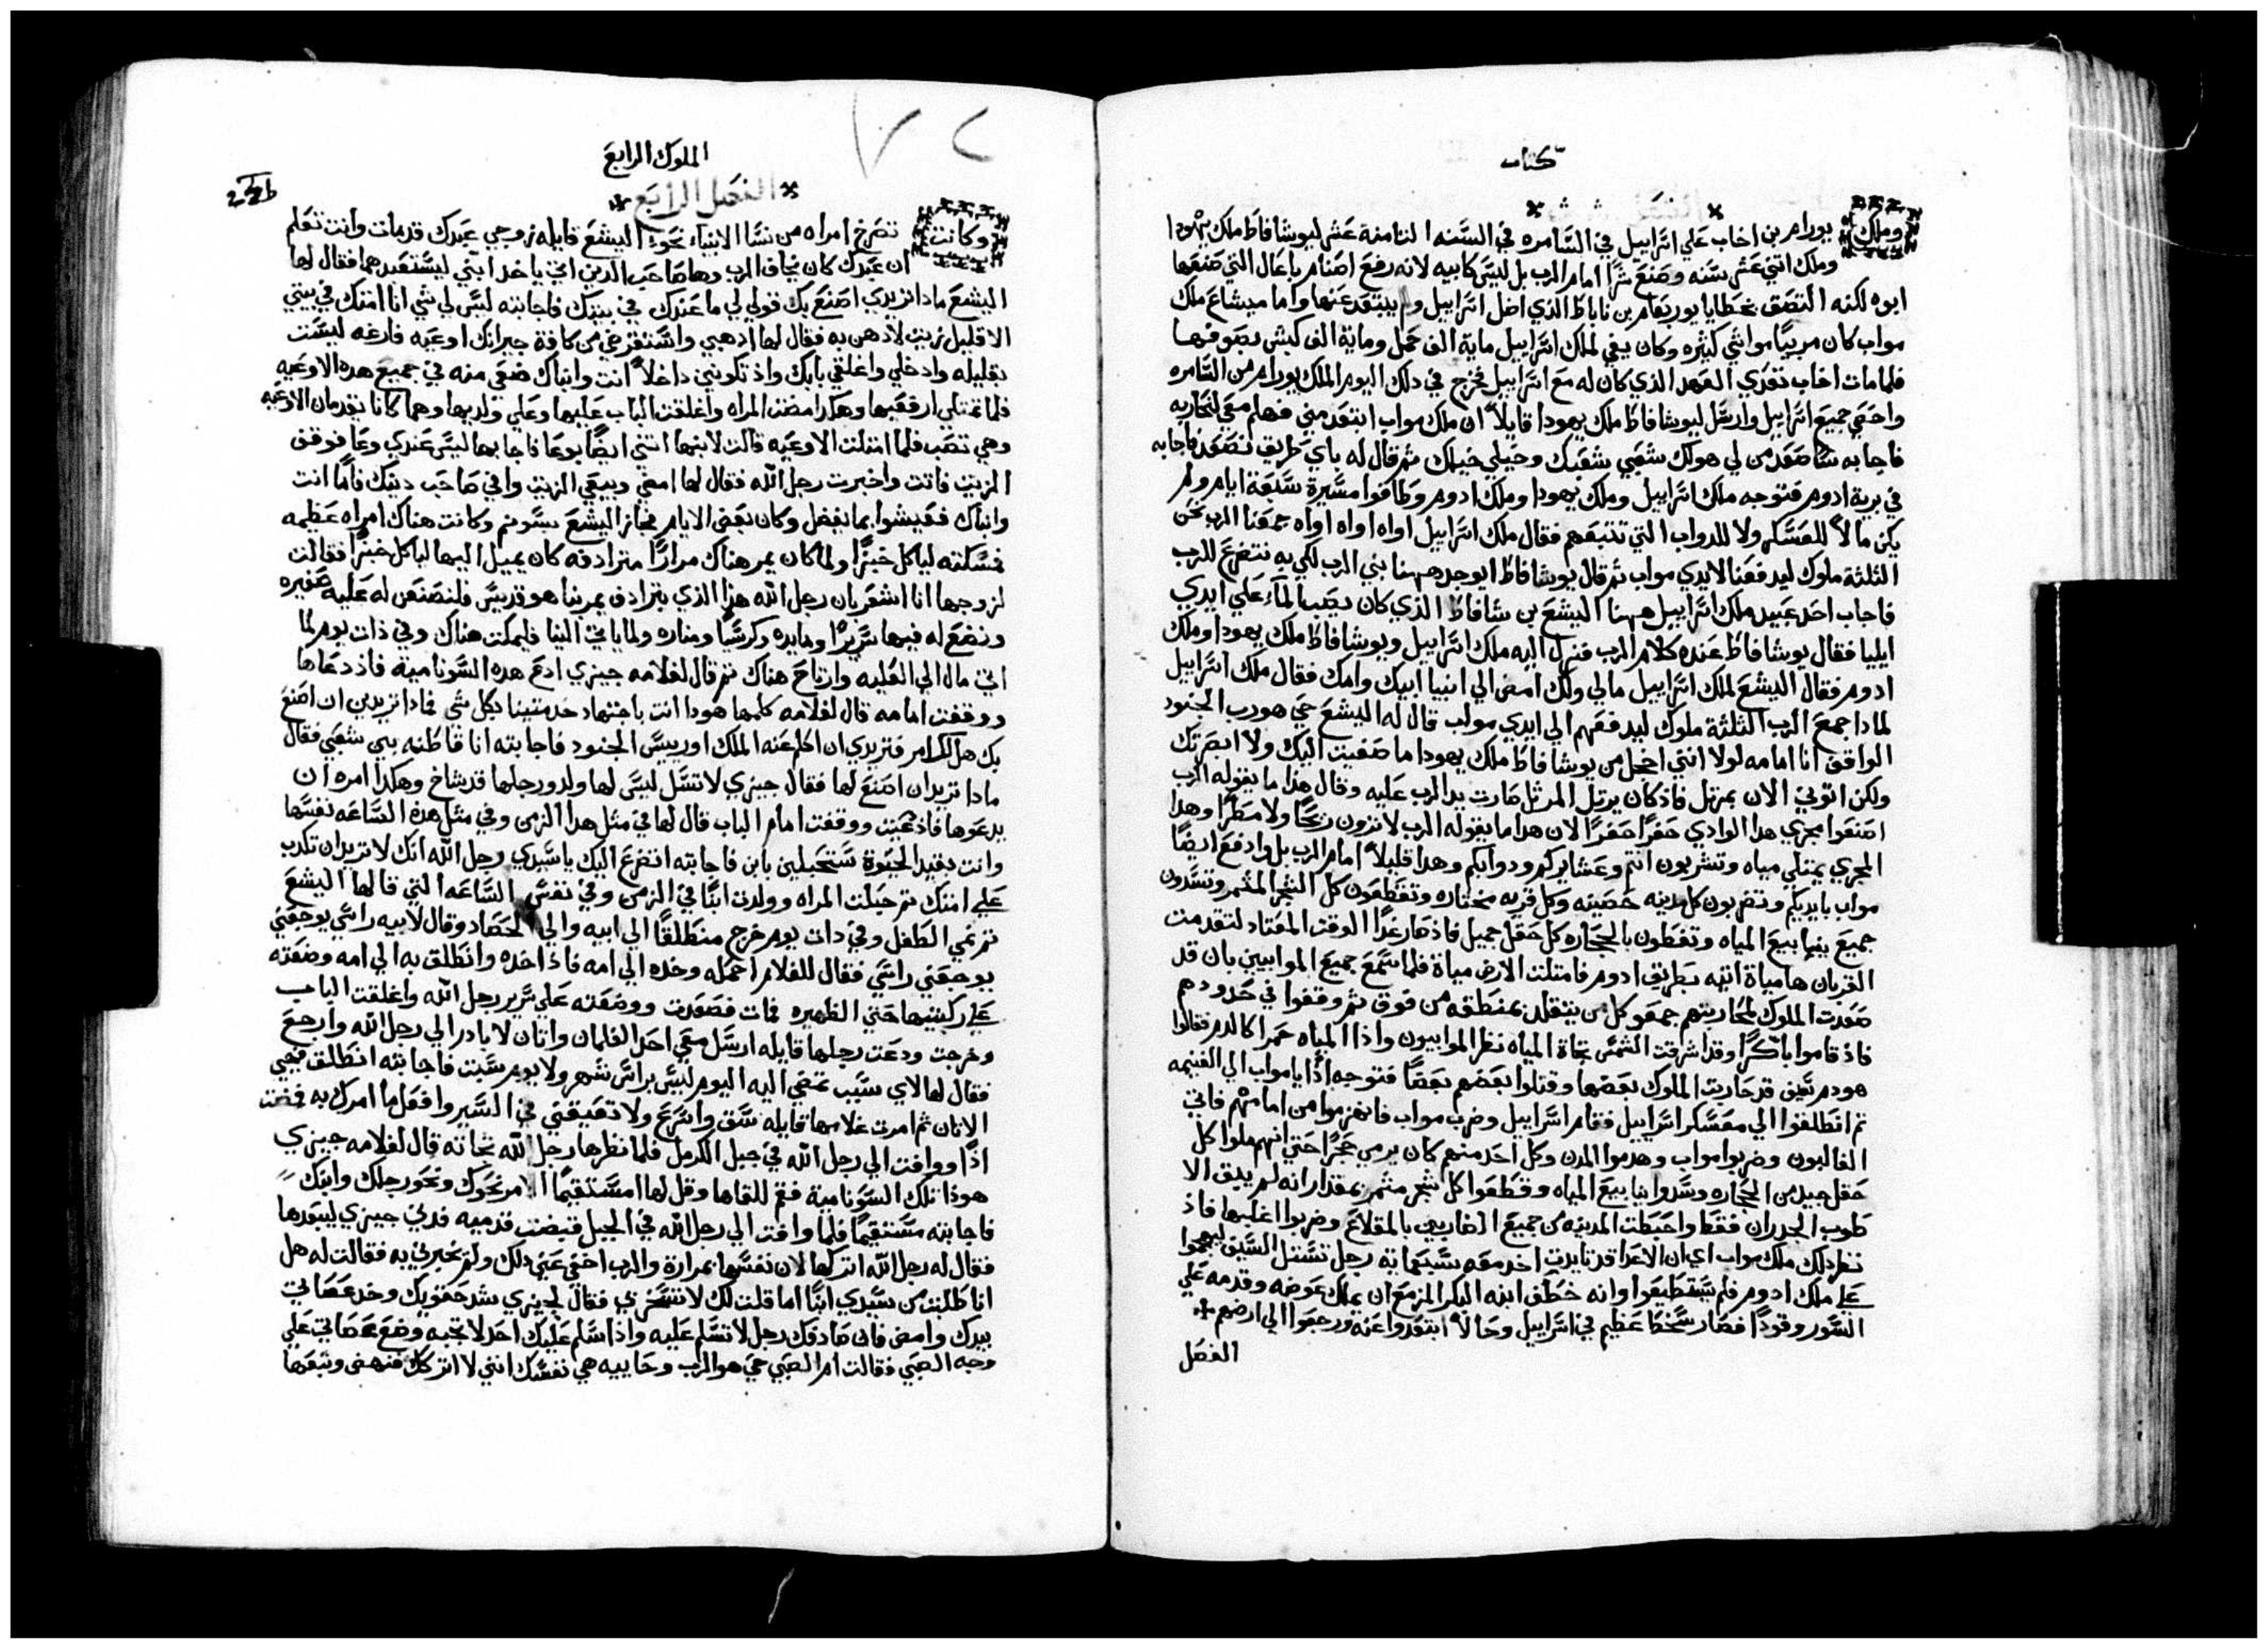 كتاب
وملك يورام بن اخاب علي اسراييل في السامره في السنه الثامنة عشر ليوشافاط ملك يهودا
وملك اثني عشر سنه وصنع شرا امام الرب بل ليس كابيه لانه رفع اصنام باعال التي صنعها
ابوه لكنه التصق بخطايا يوربعام بن ناباط الذي اضل اسراييل ولم يبتعد عنها واما ميشاع ملك
مواب كان مربيا مواشي كثيره وكان يفي لملك اسراييل ماية الف حمل وماية الف كبش بصوفها
فلما مات اخاب تعدي العهد الذي كان له مع اسراييل فخرج في دلك اليوم الملك يورام من السامره
واحصي جميع اسراييل وارسل ليوشافاط ملك يهودا قايلا ان ملك مواب ابتعد مني فهلم معي لنحاربه
فاجابه ساصعد من لي هو لك شعبي شعبك وخيلي خيلك ثم قال له باي طريق نصعد فاجابه
في برية ادوم فتوجه ملك اسراييل وملك يهودا وملك ادوم وطافوا مسيرة سبعة ايام ولم
يكن مالا للعسكر ولا للدواب التي تتبعهم فقال ملك اسراييل اواه اواه اواه جمعنا الرب نحن
الثلثة ملوك ليدفعنا لايدي مواب ثم قال يوشافاط ايوجد ههنا نبي الرب لكي به نتضرع للرب
فاجاب احد عبيد ملك اسراييل ههنا اليشع بن شافاط الذي كان يصب الماء علي ايدي
ايليا فقال يوشافاط عنده كلام الرب فنزل اليه ملك اسراييل ويوشافاط ملك يهودا وملك
ادوم فقال اليشع لملك اسراييل مالي ولك امض الي انبيا ابيك وامك فقال ملك اسراييل
لمادا جمع الرب الثلثة ملوك ليدفعهم الي ايدي مواب قال له اليشع حي هو رب الجنود
الواقف انا امامه لولا انني اخجل من يوشافاط ملك يهودا ما صغيت اليك ولا ابصرتك
ولكن اتوني الان بمرتل فاذ كان يرتل المرتل صارت يد الرب عليه وقال هذا ما يقوله الرب
اصنعوا مجري هدا الوادي حفرا حفرا لان هدا ما يقوله الرب لا ترون ريحا ولا مطرا وهدا
المجري يمتلي مياه وتشربون انتم وعشايركم ودوابكم وهدا قليلا امام الرب بل وادفع ايضا
مواب بايديكم وتضربون كل مدينه حصينه وكل قريه مختاره وتقطعون كل الشجر المثمر وتسدون
جميع ينابيع المياه وتغطون بالحجاره كل حقل جميل فاذ صار غدا الوقت المعتاد لتقدمت
القربان ها مياة اتيه بطريق ادوم فامتلت الارض مياة فلما سمع جميع الموابيين بان قد
صعدت الملوك لمحاربتهم جمعو كل من يتقلد بمنطقه من فوق ثم وقفوا في حدودهم
فاذ قاموا باكرا وقد اشرقت الشمس تجاة المياه نظر الموابيون واذا المياه حمرا كالدم فقالوا
هو دم سيف قد حاربت الملوك بعضها وقتلوا بعضهم بعضا فتوجه اذا يا مواب الي الغنيمه
ثم انطلقوا الي معسكر اسراييل فقام اسراييل وضرب مواب فانهزموا من امامهم فاتي
الغالبون وضربوا مواب وهدموا المدن وكل احد منهم كان يرمي حجرا حتي انهم ملوا كل
حقل جيد من الحجاره وسدوا ينابيع المياه وقطعوا كل شجر مثمر بمقدار انه لم يبق الا
طوب الجدران فقط واحيطت المدينه من جميع الضاربين بالمقلاع وضربوا اغلبها فاذ
نظر دلك ملك مواب اي ان الاعدا قد تايدت اخد معه سبعماية رجل تستل السيف ليهجموا
علي ملك ادوم فلم يستطيعوا وانه خطف ابنه البكر المزمع ان يملك عوضه وقدمه علي
السور وقودا فصار سخطا عظيم في اسراييل وحالا ابتعدوا عنه ورجعوا الي ارضهم
الفصل
الملوك الرابع
الفصل الرابع
وكانت تصرخ امراه من نسا الانبياء نحو اليشع قايله زوجي عبدك قد مات وانت تعلم
ان عبدك كان يخاف الرب وها صاحب الدين اتي ياخد ابني ليستعبدهما فقال لها
اليشع مادا تريدي اصنع بك قولي لي ما عندك في بيتك فاجابته ليس لي شي انا امتك في بيتي
الا قليل زيت لادهن به فقال لها ادهبي واستقرضي من كافة جيرانك اوعيه فارغه ليست
بقليله وادخلي واغلقي بابك واذ تكوني داخلا انت وابناك ضعي منه في جميع هده الاوعيه
فلما تمتلي ارفعيها وهكدا مضت المراه واغلقت الباب عليها وعلي ولديها وهما كانا يقدمان الاوعيه
وهي تصب فلما امتلت الاوعيه قالت لابنها اتني ايضا بوعا فاجابها ليس عندي وعا فوقف
الزيت فاتت واخبرت رجل الله فقال لها امضي وبيعي الزيت وافي صاحب دينك فاما انت
وابناك فعيشوا بما يفضل وكان بعض الايام فجاز اليشع بسونم وكانت هناك امراه عظيمه
فمسكته لياكل خبزا ولما كان يمر هناك مرارا مترادفه كان يميل اليها لياكل خبزا فقالت
لزوجها انا اشعر بان رجل الله هذا الذي بترادف يمر بنا هو قديس فلنصنعن له عليه صغيره
ونضع له فيها سريرا ومايده وكرسيا ومناره ولما ياتي الينا فليمكت هناك وفي ذات يوم لما
اتي مال الي العليه وارتاح هناك ثم قال لغلامه جيزي ادع هده السوناميه فاذ دعاها
ووقفت امامه قال لغلامه كلمها هودا انت باجتهاد خدمتينا بكل شي فمادا تريدين ان اصنع
بك هل لك امر فتريدي ان اكلم عنه الملك او رييس الجنود فاجابته انا قاطنه بين شعبي فقال
مادا تريد ان اصنع لها فقال جيزي لا تسل ليس لها ولد ورجلها قد شاخ وهكدا امره ان
يدعوها فاذ دعيت ووقفت امام الباب قال لها في مثل هدا الزمن وفي مثل هده الساعه نفسها
وانت بقيد الحيوة ستحبلين بابن فاجابته اتضرع اليك يا سيدي رجل الله انك لا تريد ان تكدب
علي امتك ثم حبلت المراه وولدت ابنا في الزمن وفي نفس الساعه التي قالها اليشع
ثم نمي الطفل وفي دات يوم خرج منطلقا الي ابيه والي الحصاد وقال لابيه راسي يوجعني
يوجعني راسي فقال للغلام احمله وخده الي امه فاذ اخده وانطلق به الي امه وضعته
علي ركبتيها حتي الظهيره فمات فصعدت ووضعته علي سرير رجل الله واغلقت الباب
وخرجت ودعت رجلها قايله ارسل معي احد الغلمان واتان لابادر الي رجل الله وارجع
فقال لها لاي سبب تمضي اليه اليوم ليس براس شهر ولا يوم سبت فاجابته انطلق فهيي
الاتان ثم امرت غلامها قايله سق واسرع ولا تعيقني في السير وافعل ما امرك به فمضت
اذا ووافت الي رجل الله في جبل الكرمل فلما نظرها رجل الله تجاته قال لغلامه جيزي
هوذا تلك السونامية فقم للقاها وقل لها امستقيما الامر نحوك ونحو رجلك وابنك
فاجابته مستقيما فلما وافت الي رجل الله في الجبل فبضت قدميه فدني جيزي ليبعدها
فقال له رجل الله اتركها لان نفسها بمرارة والرب اخفي عني دلك ولم يخبرني به فقالت له هل
انا طلبت من سيدي ابنا اما قلت لك لا تسخر بي فقال لجيزي شد حقويك وخد عصاتي
بيدك وامض فان صادفك رجل لا تسلم عليه واذا سلم عليك احد لا تجبه وضع عصاتي علي
وجه الصبي فقالت ام الصبي حي هو الرب وحاييه هي نفسك انني لا اتركك فنهض وتبعها